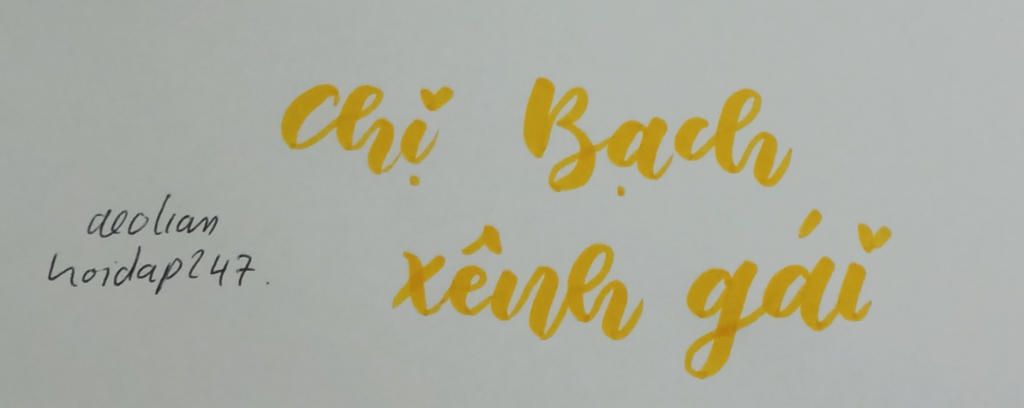 Chị Bạch
xênh gái
aeolian
hoidap247.